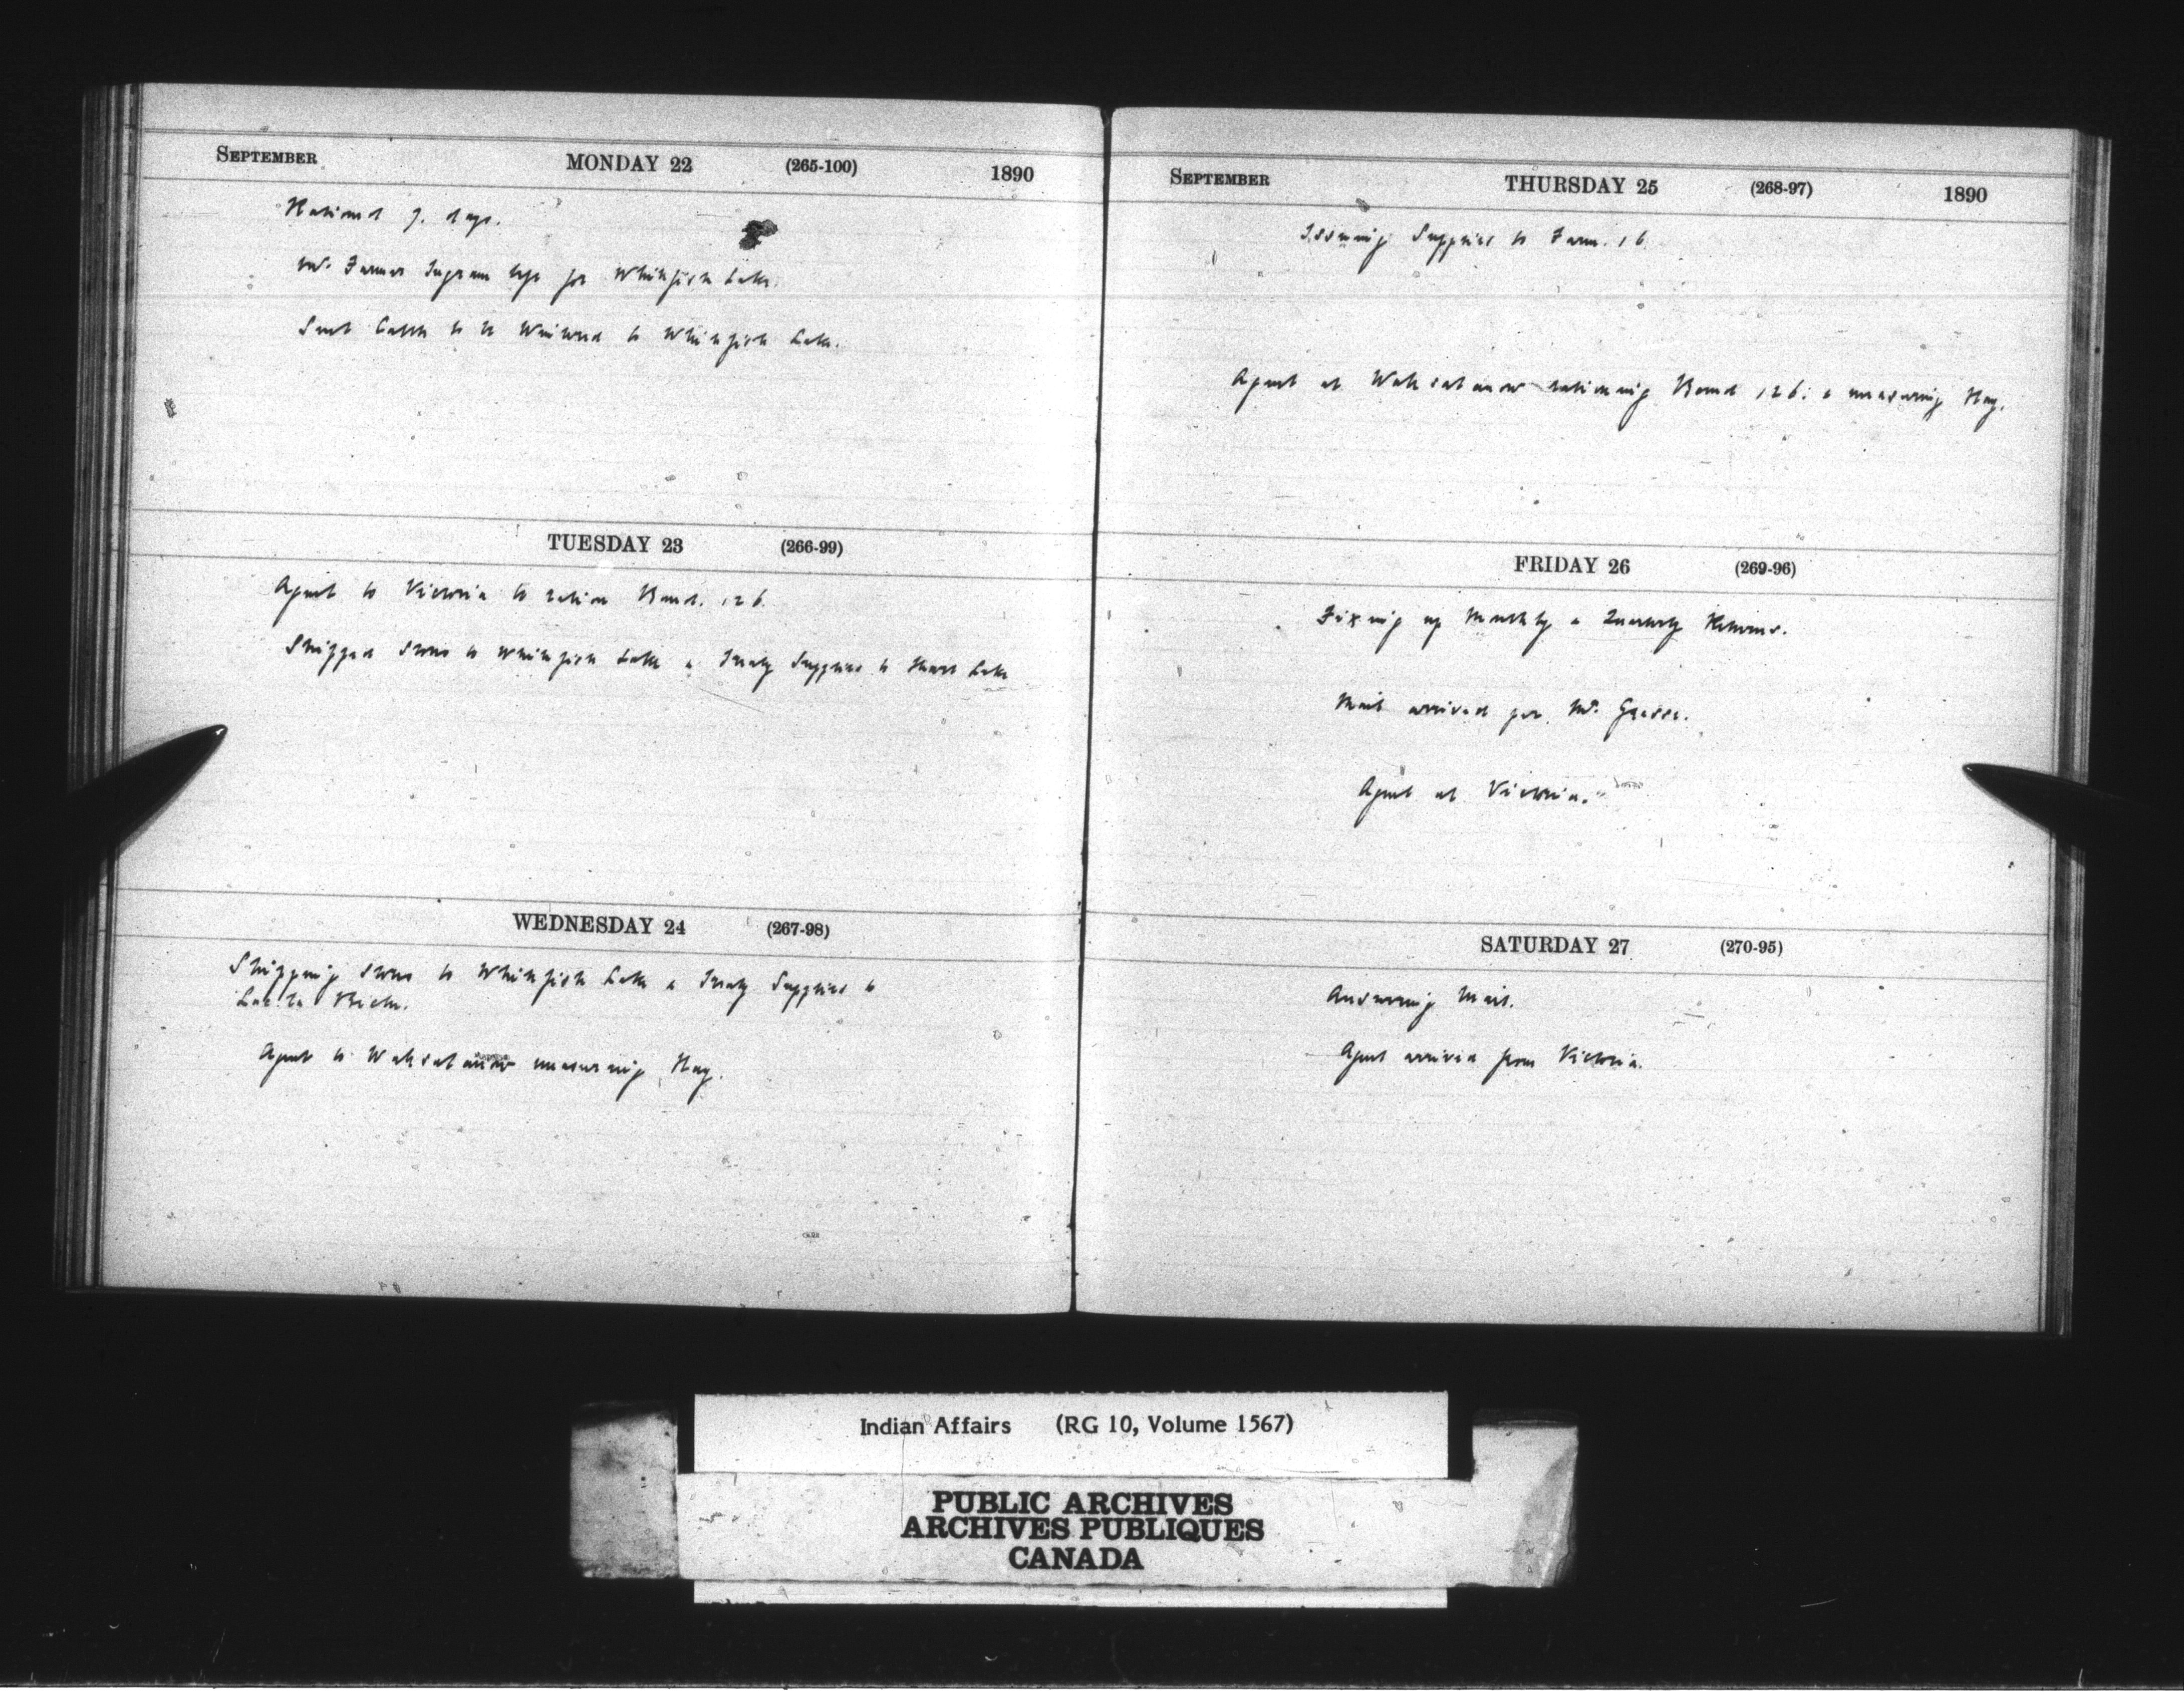 SEPTEMBER MONDAY 22 (265-100) 1890
Rationed 7. days.
Mr. Farmer Ingram left for Whitefish Lake.
Sent Cattle to be Wintered to Whitefish Lake.
TUESDAY 23 (266-99)
Agent to Victoria to ration Band. 126.
Shipped Stores to Whitefish Lake & Treaty Supplies to Heart Lake
WEDNESDAY 24 (267-98)
Shipping Stores to Whitefish Lake & Treaty Supplies to
Lac la Biche.
Agent to Wahsatanow measuring Hay.
SEPTEMBER THURSDAY 25 (268-97) 1890
Issuing Supplies to Farm. 16
Agent at Wahsatanow rationing Band 126: & measuring Hay.
FRIDAY 26 (269-96)
Fixing up Monthly & Quarterly Returns.
Mail arrived per. Mr.
Agent at Victoria.
SATURDAY 27 (270-95)
Answering Mail.
Agent arrived from Victoria.
Indian Affairs (RG 10, Volume 1567)
PUBLIC ARCHIVES
ARCHIVES PUBLIQUES
CANADA